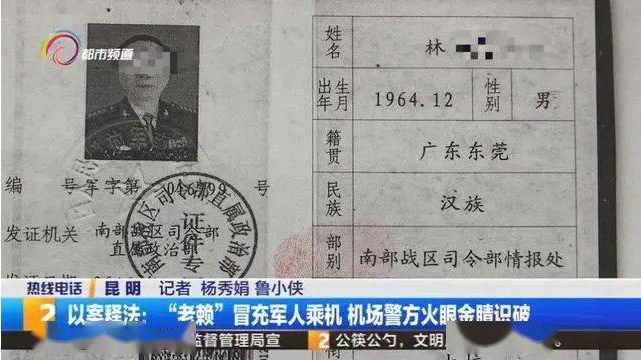 都市频道
姓名 林
出生年月 1964.12 性别 男
籍贯 广东东莞
民族 汉族
部别 南部战区司令部情报处
编号 军字第
发证机关 南部战区司令部直属政治部
证件专
热线电话 昆明 记者 杨秀娟 鲁小侠
2 以案释法：“老赖”冒充军人乘机 机场警方火眼金睛识破
监督管理局宣 2 公筷公勺，文明